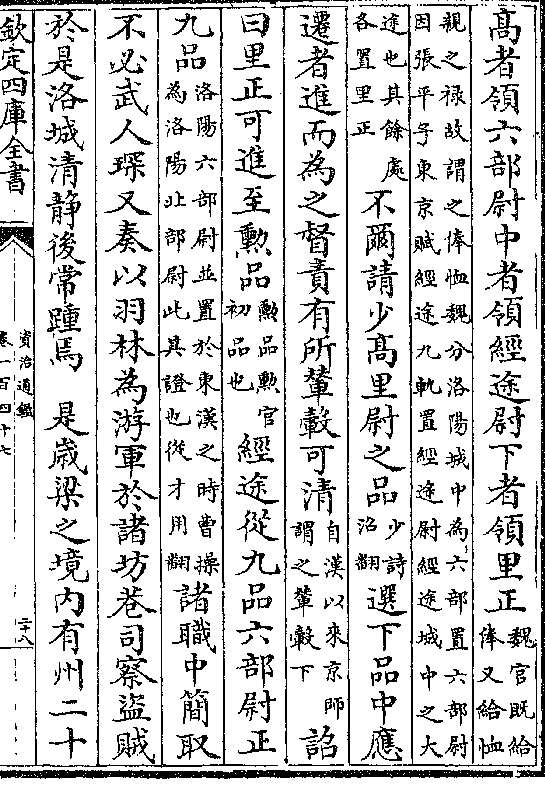 高者領六部尉中者領經途尉下者領里正魏官既給俸又給恤
親之禄故謂之俸恤魏分洛陽城中為六部置六部尉
因張平子東京賦經途九軌置經途尉經途城中之大
途也其餘處各置里正不爾請少高里尉之品少詩沼翻選下品中應
遷者進而為之督責有所輦轂可清自漢以來京師謂之輦轂下詔
曰里正可進至勲品勲品勲官初品也經途從九品六部尉正
九品洛陽六部尉並置於東漢之時曹操為洛陽北部尉此其證也從才用翻諸職中簡取
不必武人琛又奏以羽林為游軍於諸坊巷司察盜賊
於是洛城清静後常踵焉　是歲梁之境内有州二十
欽定四庫全書
資治通鑑
卷一百四十七
二十八